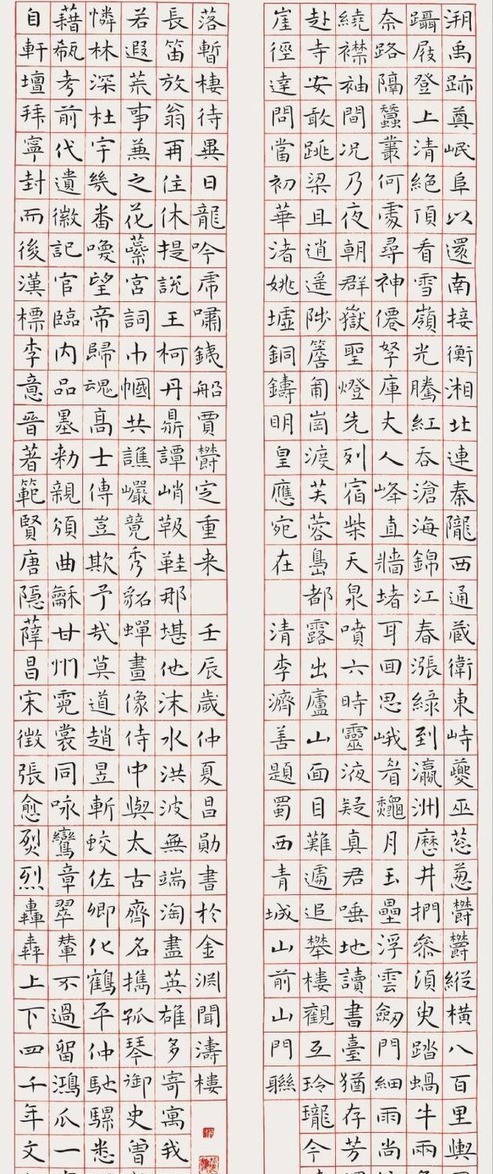 溯禹跡奠岷阜以還南接衡湘北連秦隴西通藏衛東峙夔巫葱葱鬱鬱縱橫八百里輿
躡屐登上清絕頂看雪嶺光騰紅吞滄海錦江春漲綠到瀛洲歷井捫參須臾踏蝸牛兩
奈路隔蠶叢何處尋神僊孥庫丈人峰直牆堵耳回思峨眉龝月玉壘浮雲劍門細雨尚
繞襟袖間況乃夜朝群嶽聖燈先列宿柴天泉噴六時靈液疑真君唾地讀書臺猶存芳
赴寺安敢跳梁且逍遙陟簷匍崗渡芙蓉島都露出廬山面目難遽追攀樓觀互玲瓏今
崖徑達問當初華渚姚墟銅鑄明皇應宛在
清李濟善題蜀西青城山前山門聯
自軒壇拜寧封而後漢標李意晉著範賢唐隱薛昌宋徵張愈烈烈轟轟上下四千年文
藉瓻考前代遺徽記官臨內品墨勅親頒曲龢甘州霓裳同咏鸞章翠輦不過留鴻爪一
憐林深杜宇幾番喚望帝歸魂高士傳豈欺予哉莫道趙昱斬蛟佐卿化鶴平仲馳騾悉
若遐荒事兼之花蘂宮詞巾幗共譙巖競秀貂蟬畫像侍中與太古齊名攜孤琴御史曾
長笛放翁再住休提說王柯丹鼎譚峭靸鞋那堪他沫水洪波無端淘盡英雄多寄寓我
落暫棲待異日龍吟虎嘯鐵船賈鬱定重來
壬辰歲仲夏昌勛書於金淵聞濤樓